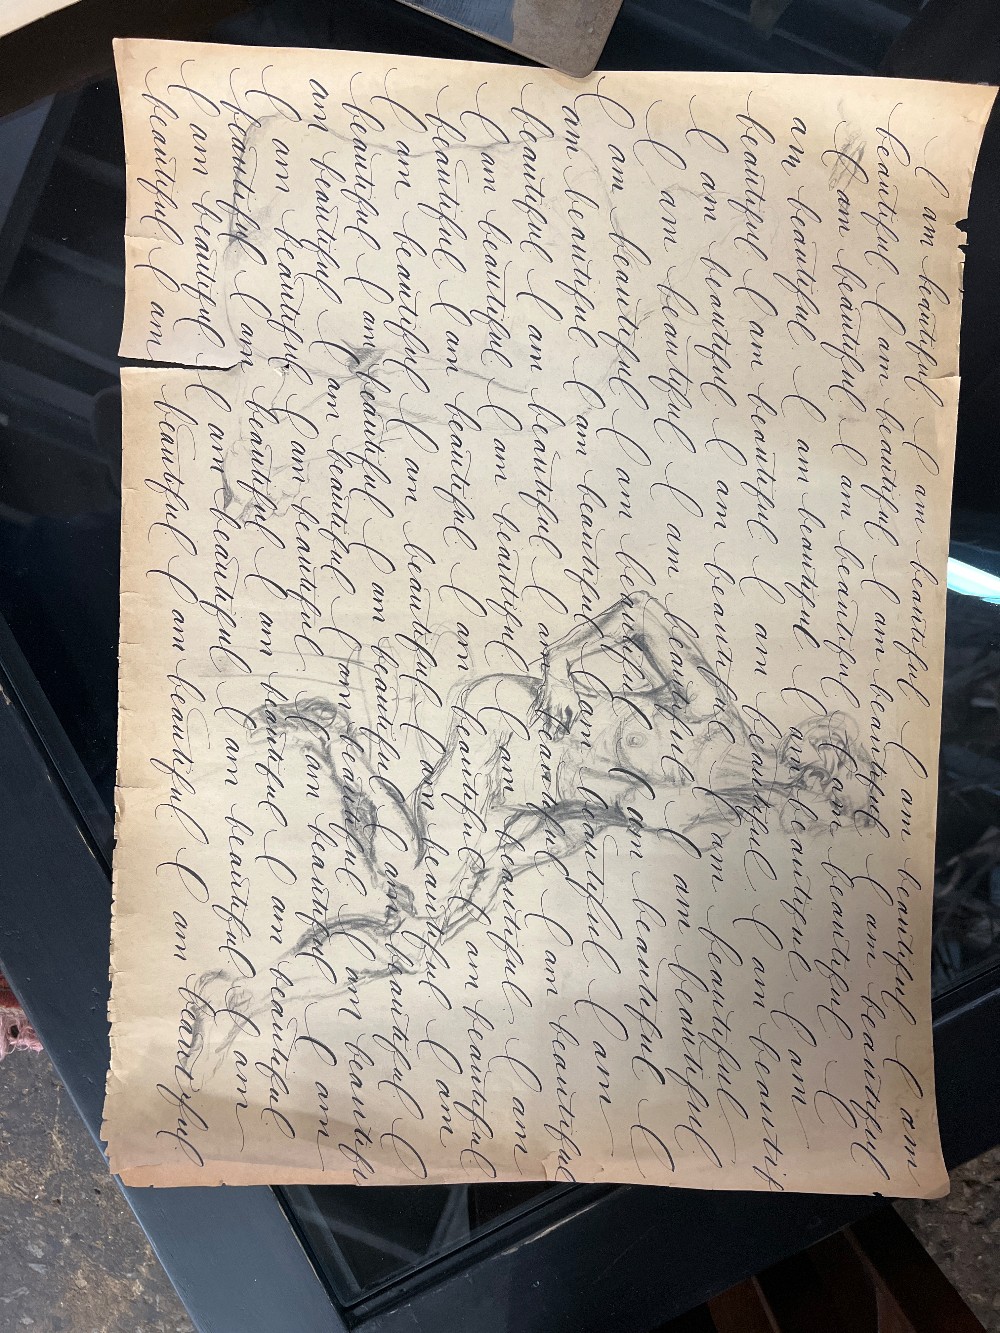 I am beautiful I am beautiful I am beautiful I am
beautiful I am beautiful I am beautiful I am beautiful
I am beautiful I am beautiful I am beautiful I
am beautiful I am beautiful I am beautiful I am
beautiful I am beautiful I am beautiful I am beautif
I am beautiful I am beautiful I am beautiful
I am beautiful I am beautiful I am beautiful
I am beautiful I am beautiful I am beautiful I
am beautiful I am beautiful I am beautiful I am
beautiful I am beautiful I am beautiful I am beautiful
I am beautiful I am beautiful I am beautiful I am
beautiful I am beautiful I am beautiful I am beautiful
I am beautiful I am beautiful I am beautiful I am
beautiful I am beautiful I am beautiful I am beautiful I
am beautiful I am beautiful I am beautiful I am beautifu
I am beautiful I am beautiful I am beautiful I am
beautiful I am beautiful I am beautiful I am beautiful
I am beautiful I am beautiful I am beautiful I am
beautiful I am beautiful I am beautiful I am beautiful